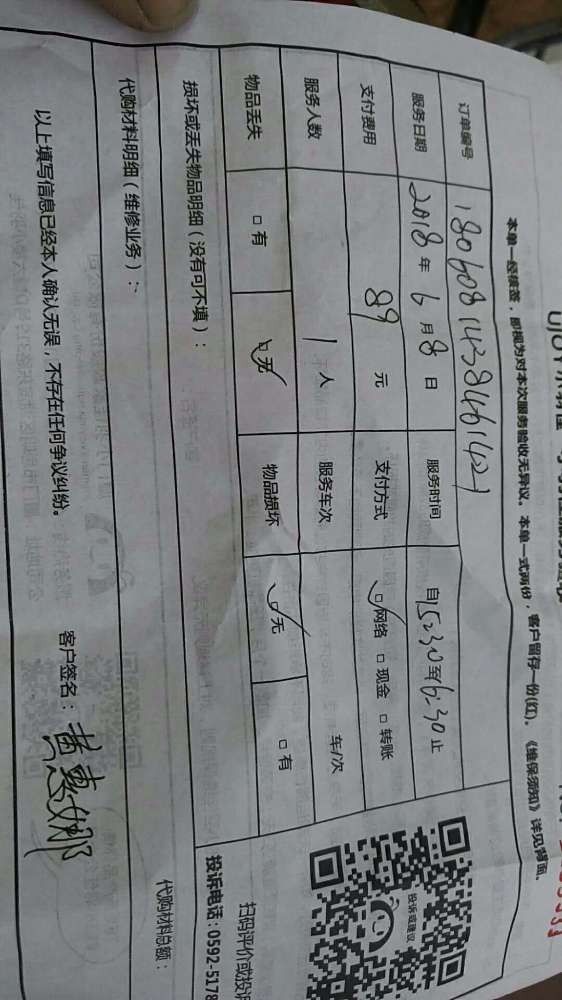 本单一经核签，即视为对本次服务验收无异议。本单一式两份，客户留存一份(红)。《维保须知》详见背面。
订单编号 18060814384461421
服务日期 2018年6月8日 服务时间 自15:30至16:30止
支付费用 89元 支付方式 网络 现金 转账
服务人数 1人 服务车次 车/次
物品丢失 有 无 物品损坏 无 有
损坏或丢失物品明细（没有可不填）：
代购材料明细（维修业务）：
代购材料总额：
以上填写信息已经本人确认无误，不存在任何争议纠纷。 客户签名：黄惠娜
投诉或建议
扫码评价或投诉
投诉电话：0592-5178